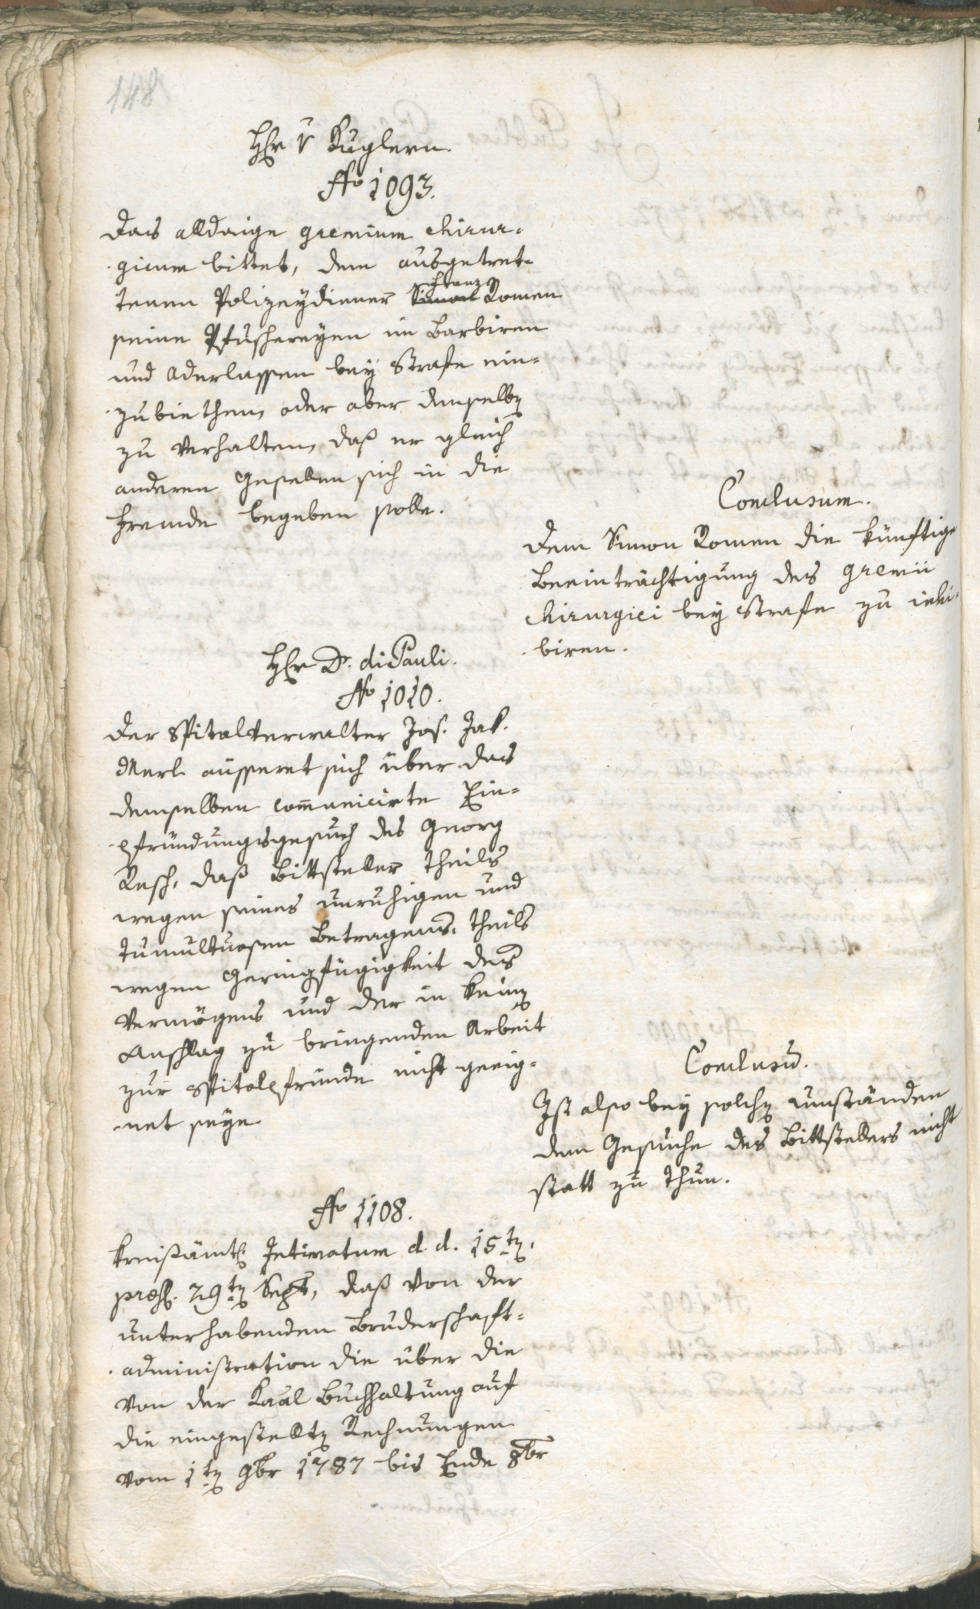 148
Hr v Kuglern.
No 1093.
Das alldaige gremium chirur-
gicum bittet, dem ausgetret-
tenen Polizeydiener Simon Franz Romen
seine Pfuschereyen im Barbiren
und Aderlassen bey Strafe ein-
zubiethen, oder aber demselben
zu verhalten, daß er gleich
anderen Gesellen sich in die
Fremde begeben solle.
Conclusum.
Dem Simon Romen die künftige
Beeinträchtigung des gremii
chirurgici bey Strafe zu inhi-
biren.
Hr Dr. di Pauli.
No 1010.
Der Spitalverwalter Jos. Jak.
Merl äusseret sich über das
demselben comunicirte Ein-
pfründungsgesuch des Georg
Resch, daß Bittsteller theils
wegen seines unruhigen und
tumultuosen Betragens, theils
wegen Geringfügigkeit des
Vermögens und der in keinen
Anschlag zu bringenden Arbeit
zur Spitalpfründe nicht geeig-
net seye.
Conclusum.
Ist also bey solchen Umständen
dem Gesuche des Bittstellers nicht
statt zu thun.
No 1108.
Kreisämtl. Intimatum d. d. 15ten,
præs. 29ten Sept, daß von der
unterhabenden Bruderschaft-
administration die über die
von der Kaal Buchhaltung auf
die eingestellten Rechnungen
vom 1ten 9br 1787 bis Ende 8br